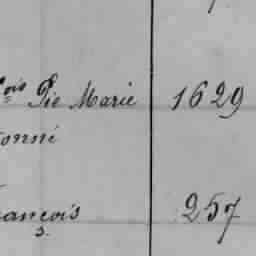 ois Pie Marie 1629
onné
rancois 257
s.